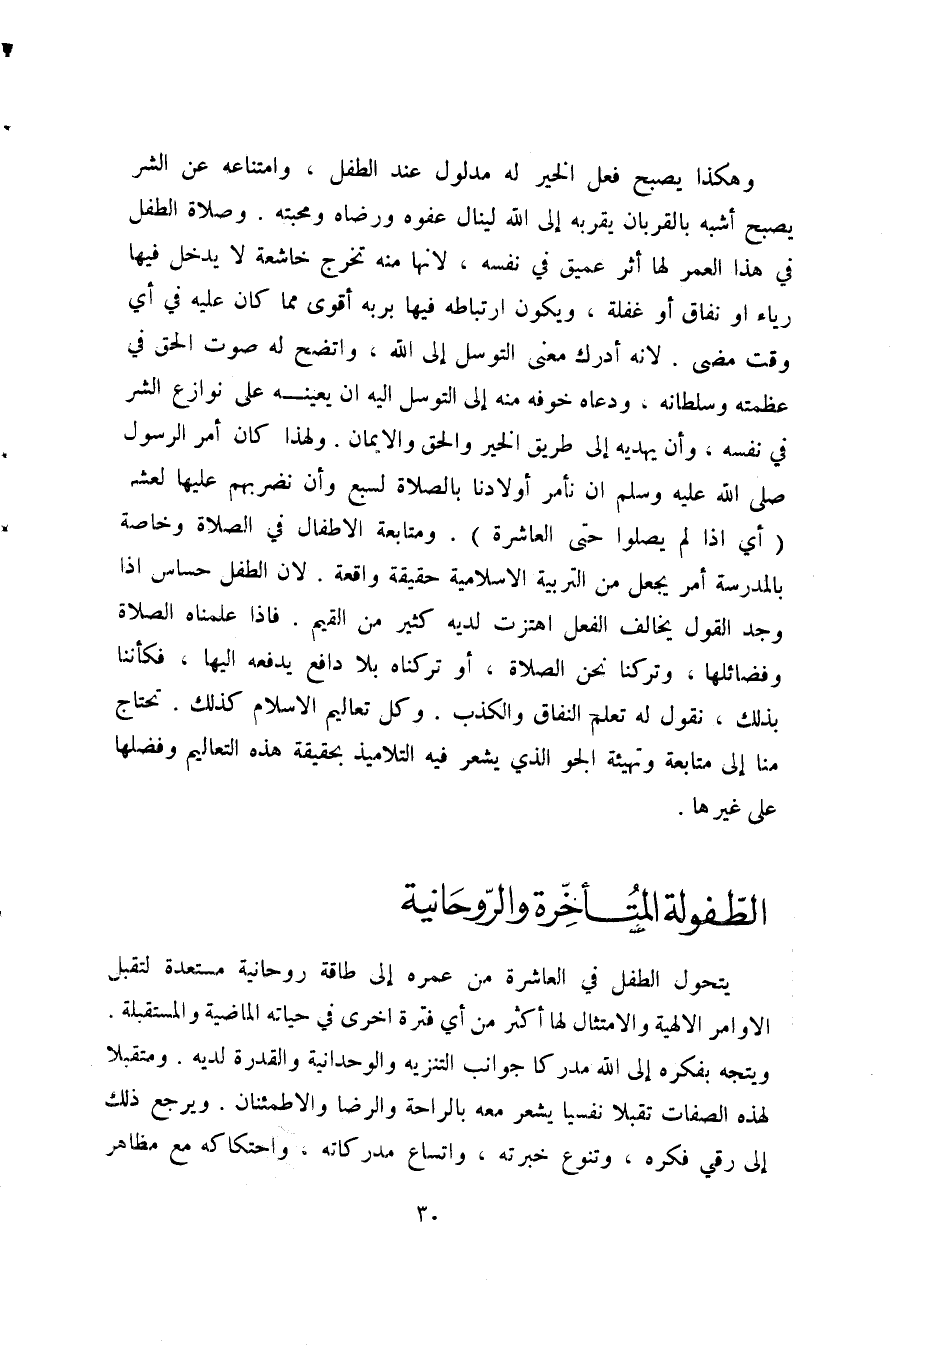 وهكذا يصبح فعل الخير له مدلول عند الطفل ، وامتناعه عن الشر
يصبح أشبه بالقربان يقربه إلى الله لينال عفوه ورضاه ومحبته . وصلاة الطفل
في هذا العمر لها أثر عميق في نفسه ، لانها منه تخرج خاشعة لا يدخل فيها
رياء او نفاق أو غفلة ، ويكون ارتباطه فيها بربه أقوى مما كان عليه في أي
وقت مضى . لانه أدرك معنى التوسل إلى الله ، واتضح له صوت الحق في
عظمته وسلطانه ، ودعاه خوفه منه إلى التوسل اليه ان يعينـــه على نوازع الشر
في نفسه ، وأن يهديه إلى طريق الخير والحق والايمان . ولهذا كان أمر الرسول
صلى الله عليه وسلم ان نأمر أولادنا بالصلاة لسبع وأن نضربهم عليها لعشر
( أي اذا لم يصلوا حتى العاشرة ) . ومتابعة الاطفال في الصلاة وخاصة
بالمدرسة أمر يجعل من التربية الاسلامية حقيقة واقعة . لان الطفل حساس اذا
وجد القول يخالف الفعل اهتزت لديه كثير من القيم . فاذا علمناه الصلاة
وفضائلها ، وتركنا نحن الصلاة ، أو تركناه بلا دافع يدفعه اليها ، فكأننا
بذلك ، نقول له تعلم النفاق والكذب . وكل تعاليم الاسلام كذلك . تحتاج
منا إلى متابعة وتهيئة الجو الذي يشعر فيه التلاميذ بحقيقة هذه التعاليم وفضلها
على غيرها .
الطّفولة المتُـــأخِّرة والرّوحَانية
يتحول الطفل في العاشرة من عمره إلى طاقة روحانية مستعدة لتقبل
الاوامر الالهية والامتثال لها أكثر من أي فترة اخرى في حياته الماضية والمستقبلة .
ويتجه بفكره إلى الله مدركا جوانب التنزيه والوحدانية والقدرة لديه . ومتقبلا
لهذه الصفات تقبلا نفسيا يشعر معه بالراحة والرضا والاطمئنان . ويرجع ذلك
إلى رقي فكره ، وتنوع خبرته ، واتساع مدركاته ، واحتكاكه مع مظاهر
٣٠